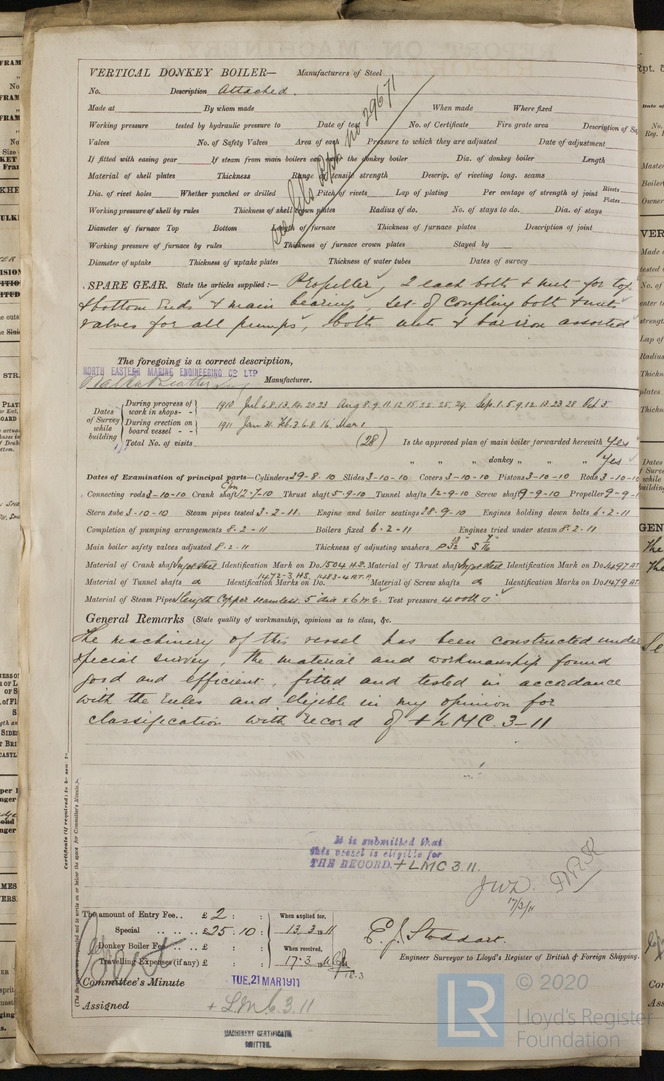 VERTICAL DONKEY BOILER— Manufacturers of Steel
No. Description Attached.
Made at By whom made When made Where fixed
Working pressure tested by hydraulic pressure to Date of test No. of Certificate Fire grate area Description of
Valves No. of Safety Valves Area of each Pressure to which they are adjusted Date of adjustment
If fitted with easing gear If steam from main boilers can enter the donkey boiler Dia. of donkey boiler Length
Material of shell plates Thickness Range of tensile strength Descrip. of riveting long. seams
Dia. of rivet holes Whether punched or drilled Pitch of rivets Lap of plating Per centage of strength of joint Rivets Plates
Working pressure of shell by rules Thickness of shell crown plates Radius of do. No. of stays to do. Dia. of stays
Diameter of furnace Top Bottom Length of furnace Thickness of furnace plates Description of joint
Working pressure of furnace by rules Thickness of furnace crown plates Stayed by
Diameter of uptake Thickness of uptake plates Thickness of water tubes Dates of survey
No 29671
SPARE GEAR. State the articles supplied:— Propeller, 2 each bolts & nuts for top
& bottom Ends & main bearings, set of coupling bolts & nuts
Valves for all pumps, bolts nuts & bar iron assorted
The foregoing is a correct description,
NORTH EASTERN MARINE ENGINEERING CO LTD
Manufacturer.
Dates of Survey while building
During progress of work in shops - - 1910 Jul 6.8.13.14.20.23 Aug 8.9.11.12.15.22.25.29. Sep. 1.5.9.12.13.23.28 Oct 3.
During erection on board vessel - - 1911 Jan 31. Feb 3.6.8.16. Mar 1
Total No. of visits (28) Is the approved plan of main boiler forwarded herewith Yes
" " " donkey " " " Yes
Dates of Examination of principal parts—Cylinders 29-8-10 Slides 3-10-10 Covers 3-10-10 Pistons 3-10-10 Rods 3-10-10
Connecting rods 3-10-10 Crank shaft 12-7-10 Thrust shaft 5-9-10 Tunnel shafts 12-9-10 Screw shaft 9-9-10 Propeller 9-9-1
Stern tube 3-10-10 Steam pipes tested 3-2-11. Engine and boiler seatings 28-9-10 Engines holding down bolts 6-2-11
Completion of pumping arrangements 8-2-11 Boilers fixed 6-2-11 Engines tried under steam 8-2-11
Main boiler safety valves adjusted 8-2-11 Thickness of adjusting washers P 13/32 S 7/16
Material of Crank shaft Ingot Steel Identification Mark on Do. 1504 H.S. Material of Thrust shaft Ingot Steel Identification Mark on Do. 1497 HT.
Material of Tunnel shafts do Identification Marks on Do. 1472-3 H.S. Material of Screw shafts do Identification Marks on Do. 1479 HT.
Material of Steam Pipes Copper seamless 5" dia Test pressure 400 lb □"
General Remarks (State quality of workmanship, opinions as to class, &c.
The machinery of this vessel has been constructed under
special survey, the material and workmanship found
good and efficient, fitted and tested in accordance
with the Rules and eligible in my opinion for
classification with record of + LMC. 3-11
It is submitted that
this vessel is eligible for
THE RECORD. + LMC 3.11.
JWD.
17/3/11
Certificate (if required) to be sent to
The amount of Entry Fee. . £ 2 : : When applied for,
Special . . . . £ 25.10 : 13.3.11
Donkey Boiler Fee . . £ : : When received,
Travelling Expenses (if any) £ : : 17.3.11
E. J. Stoddart.
Engineer Surveyor to Lloyd's Register of British & Foreign Shipping.
Committee's Minute TUE. 21 MAR 1911
Assigned + LMC 3.11
MACHINERY CERTIFICATE
WRITTEN.
LR
© 2020
Lloyd's Register
Foundation